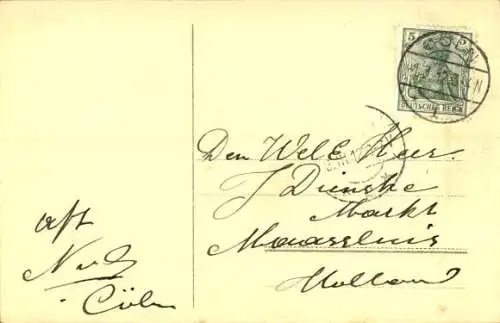 5
CÖLN
DEUTSCHES REICH
Den Wel E. Heer.
J Dienske
Markt
Maassluis
Holland
aft
Cöln